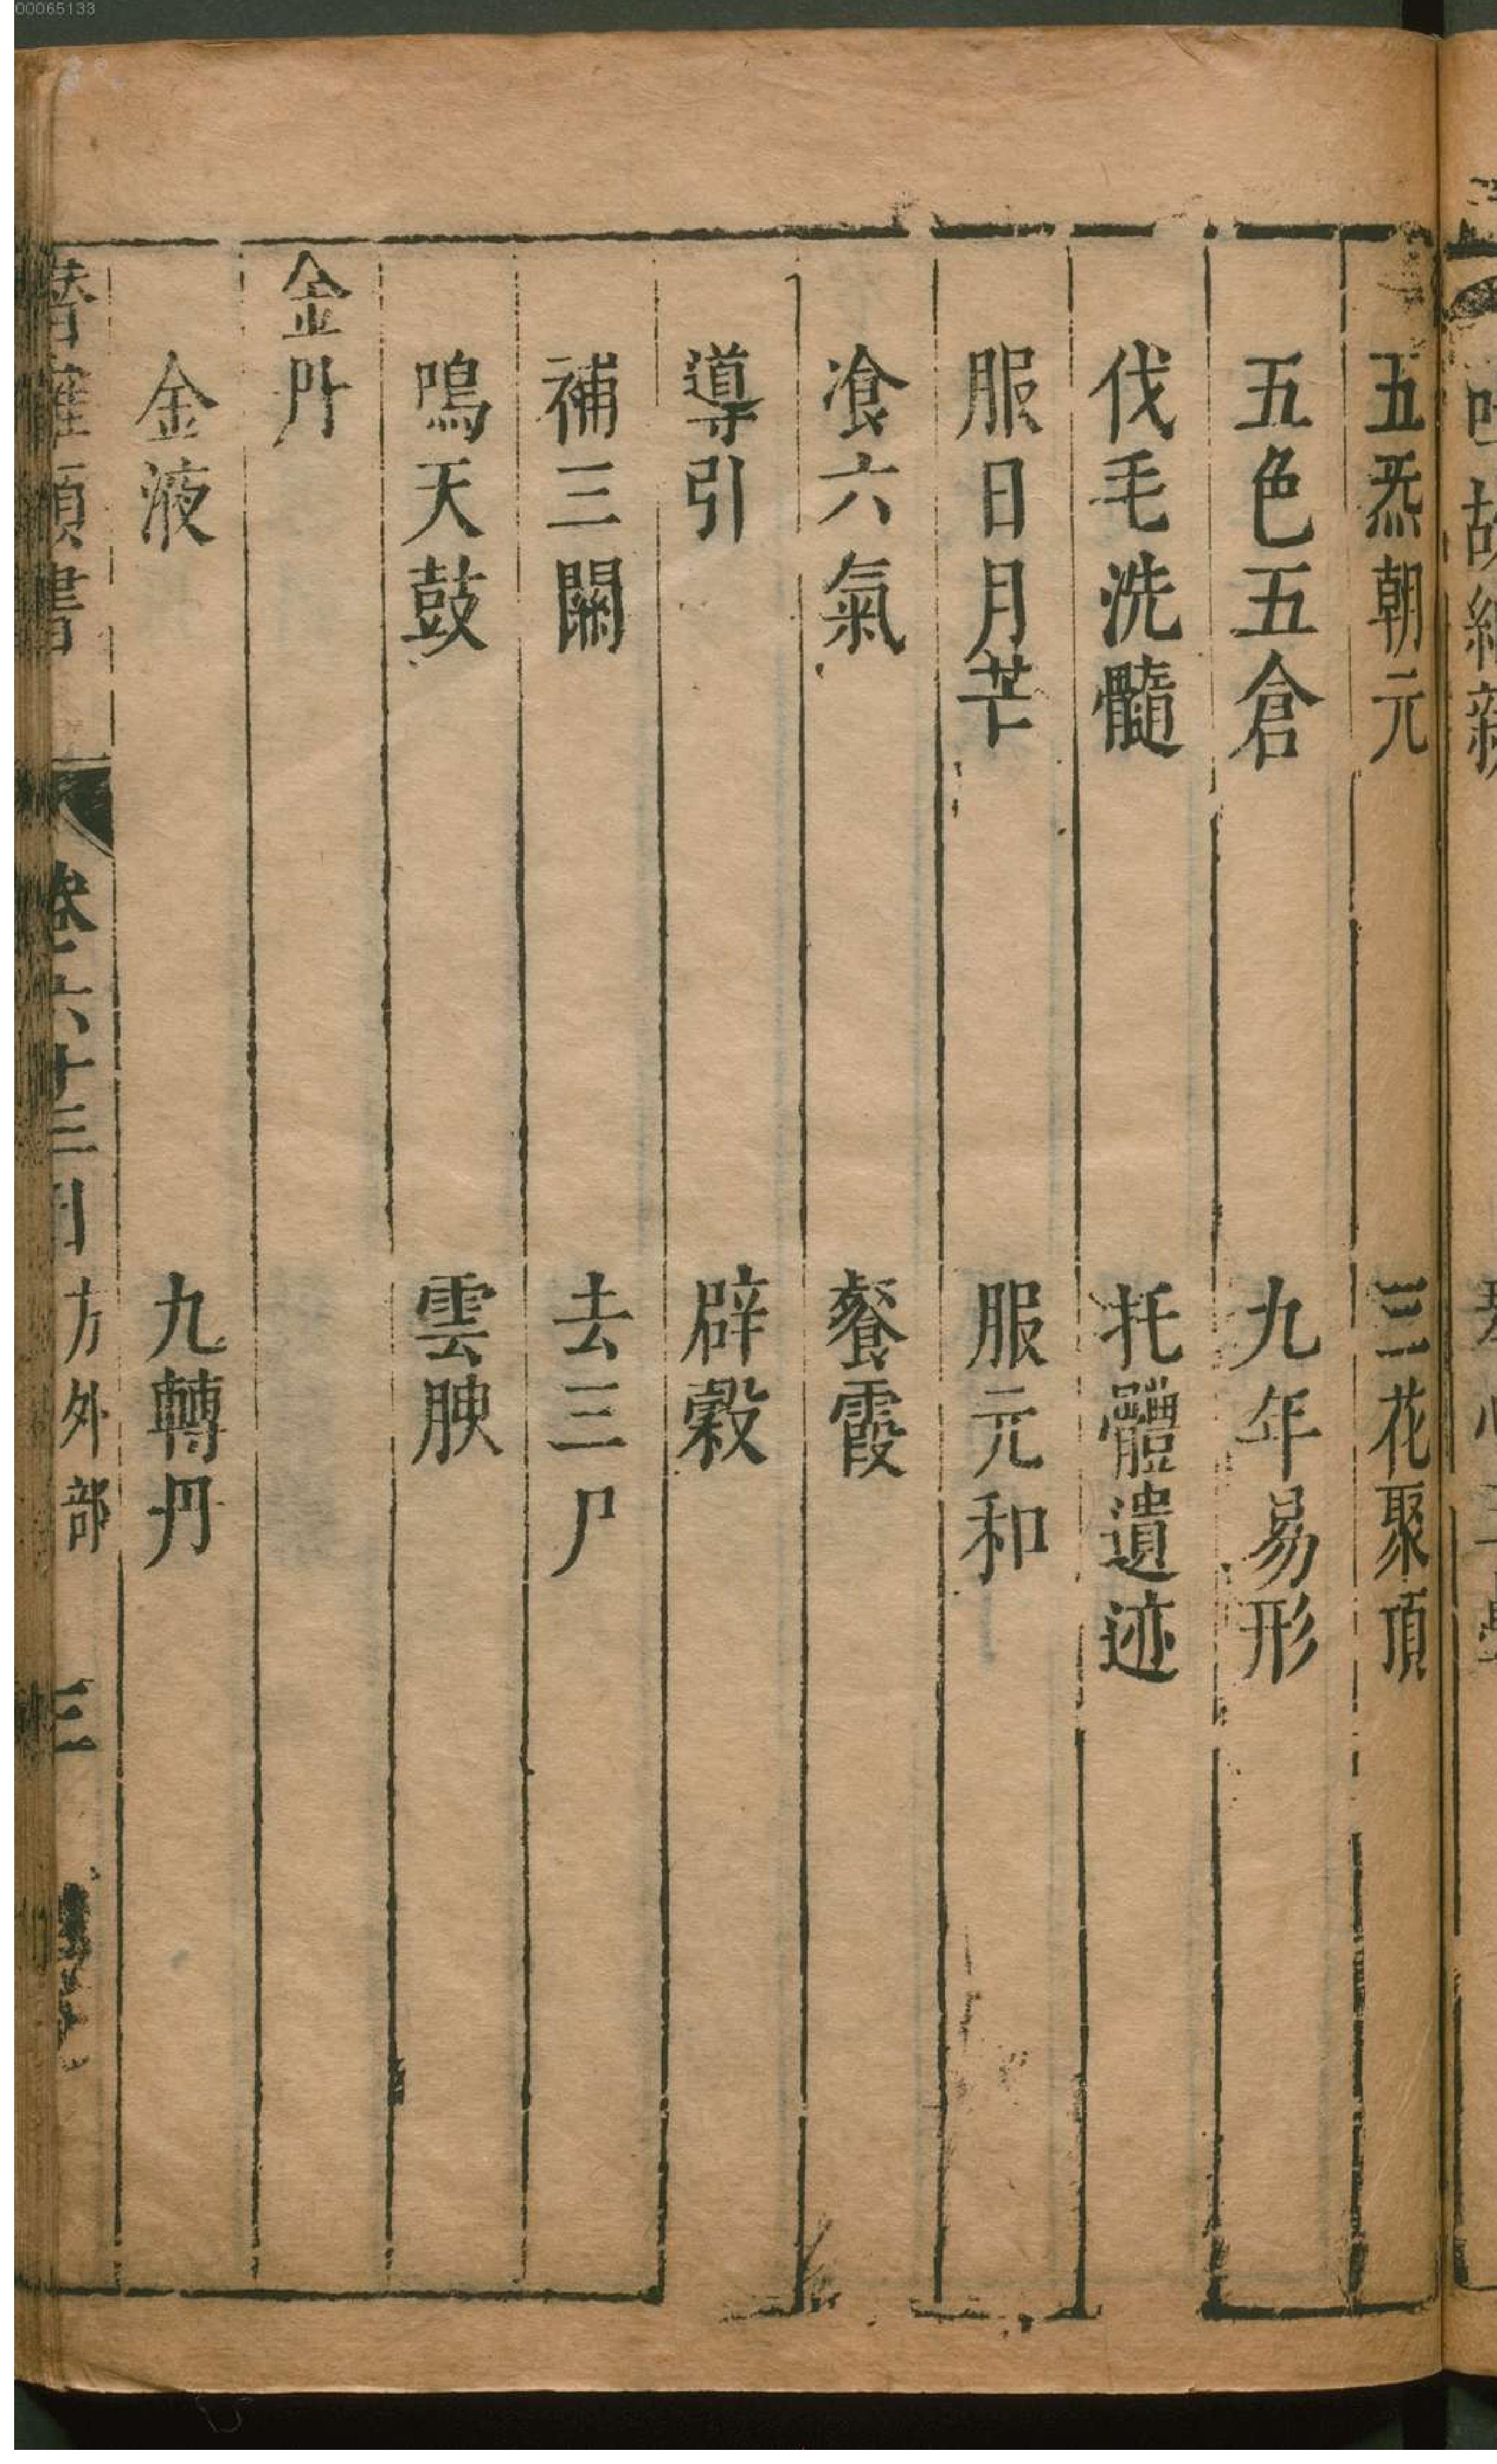 00065133
五炁朝元 三花聚頂
五色五倉 九年易形
伐毛洗髓 托體遺迹
服日月芒 服元和
飡六氣 餐霞
導引 辟穀
補三關 去三尸
鳴天鼓 雲腴
金丹
金液 九轉丹
卷六十三目 方外部 三